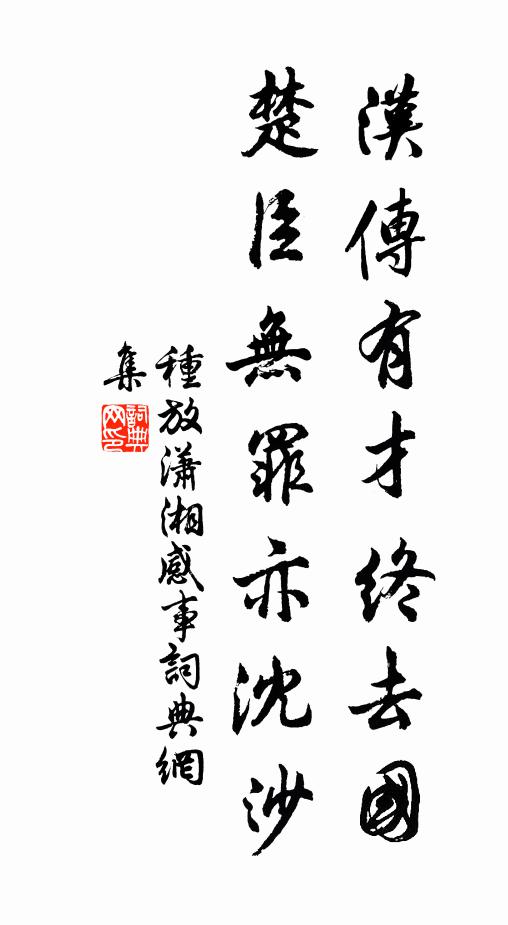 漢傳有才終去國
楚臣無罪亦沈沙
種放瀟湘感事詞典網
集
詞典
网印